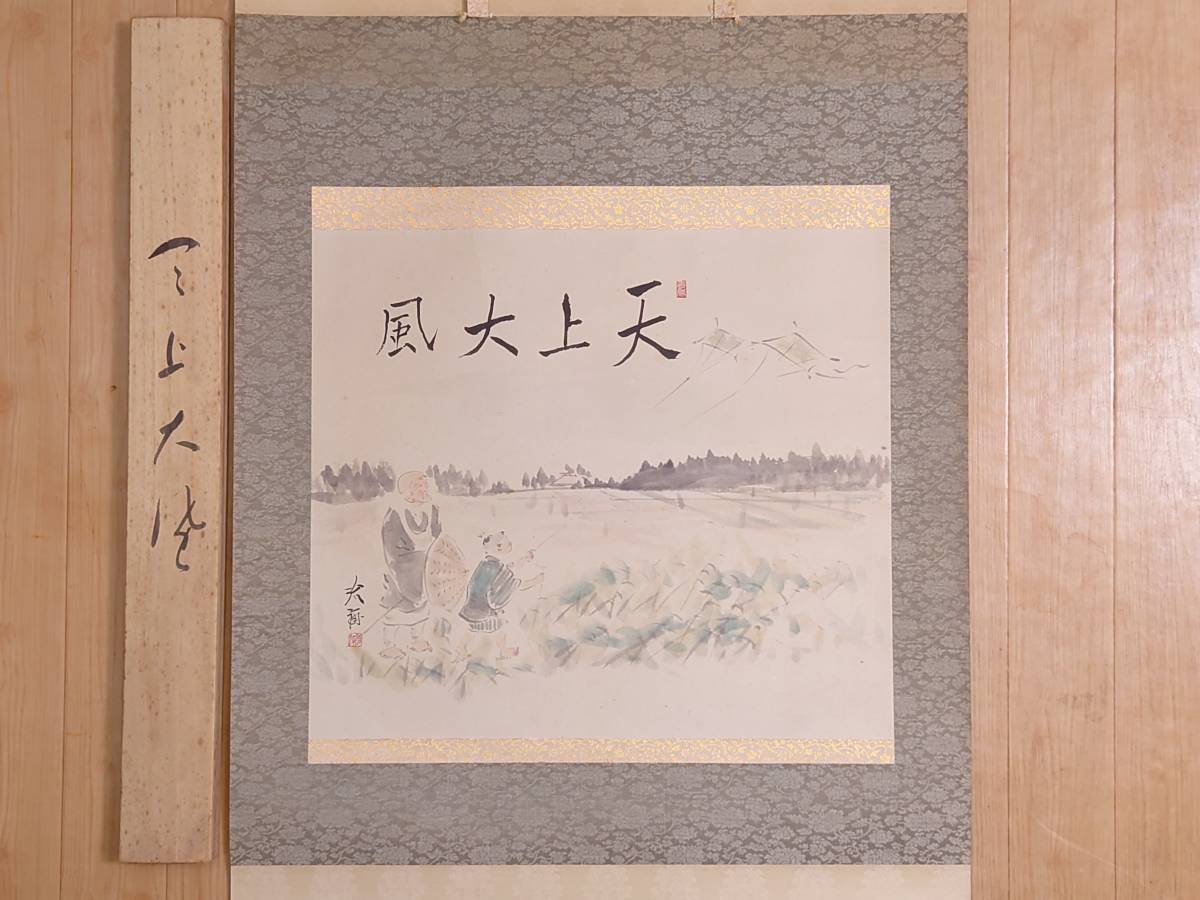 天上大風
天上大風